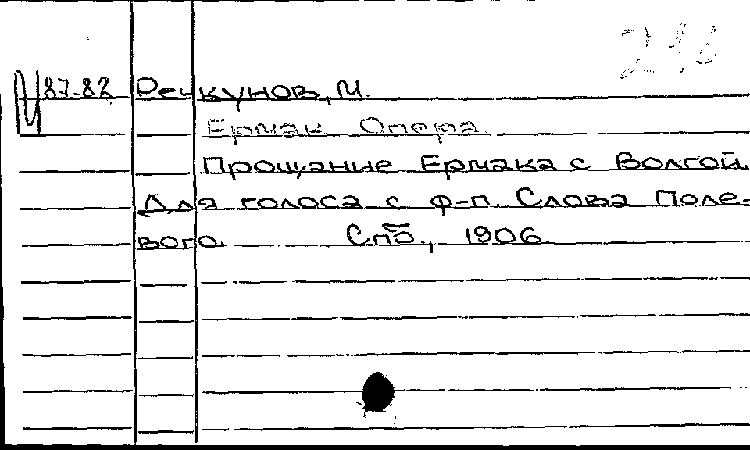 87-82 Речкунов, М.
Ермак Опера.
Прощание Ермака с Волгой.
Для голоса с ф-п. Слова Поле-
вого. Спб., 1906